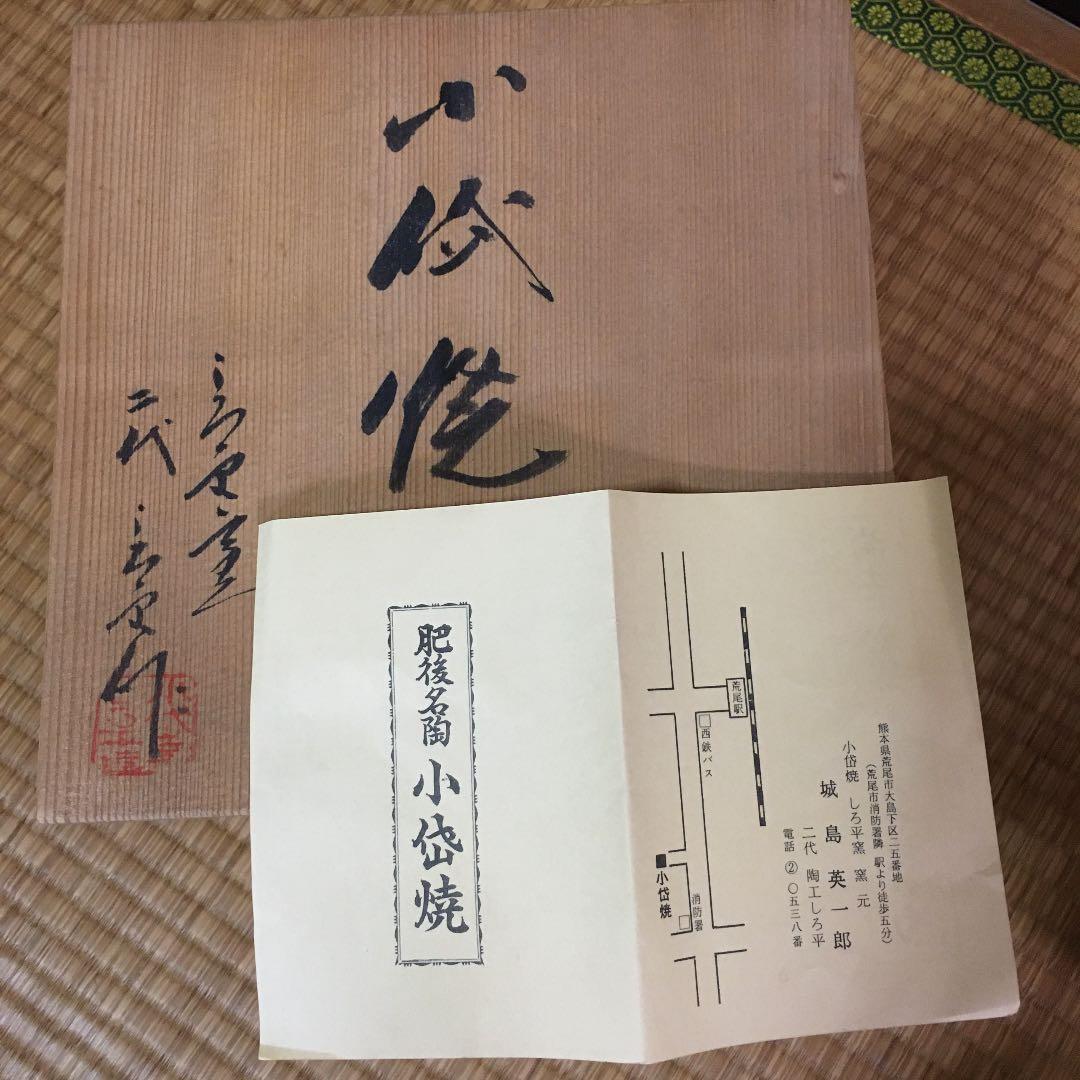 小代焼
しろ平窯
二代 しろ平作
肥後名陶 小岱焼
熊本県荒尾市大島下区二五番地
(荒尾市消防署隣 駅より徒歩五分)
小岱焼 しろ平窯 窯元
城島英一郎
二代 陶工しろ平
電話 ② 〇五三八番
荒尾駅
西鉄バス
消防署
小岱焼